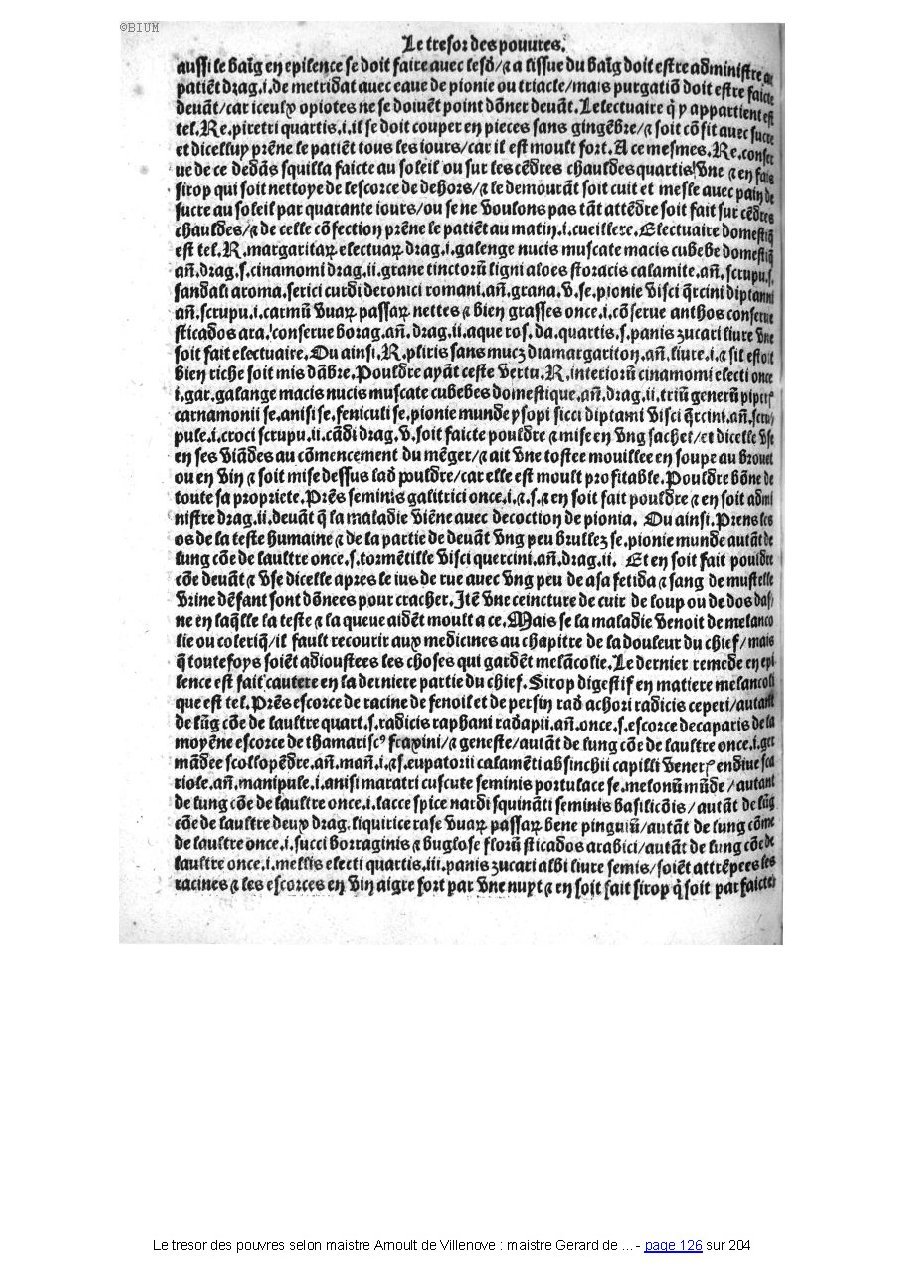 ©BIUM
Le tresor des pouures.
aussi le baīg en epilence se doit faire auec lesd̄/⁊ a lissue du baīg doit estre administre au
patiēt drag.i.de metridat auec eaue de pionie ou triacle/mais purgatiō doit estre faicte
deuāt/car iceulx opiotes ne se doiuēt point dōner deuāt. Lelectuaire q̄ y appartient est
tel. Re. piretri quartis.i.il se doit couper en pieces sans gingēbre/⁊ soit cōfit auec sucre
et dicelluy prēne le patiēt tous les iours/car il est moult fort. A ce mesmes. Re. conser
ue de ce dedās squilla faicte au soleil ou sur les cēdres chauldes quartis vne ⁊ en fais
sirop qui soit nettoye de lescorce de dehors/⁊ le demourāt soit cuit et mesle auec pain de
sucre au soleil par quarante iours/ou se ne voulons pas tāt attēdre soit fait sur cēdres
chauldes/⁊ de celle cōfection prēne le patiēt au matin.i.cueillere. Electuaire domestiq̄
est tel. R. margaritaꝝ electuaꝝ drag.i.galenge nucis muscate macis cubebe domestiq̄
an̄.drag.s.cinamomi drag.ii.grane tinctorū ligni aloes storacis calamite.an̄.scrupu.s.
sandali aroma.serici curdi deronici romani.an̄.grana.v.se.pionie visci q̄rcini diptanni
an̄.scrupu.i.carmū vuaꝝ passaꝝ nettes ⁊ bien grasses once.i.cōserue anthos conserue
sticados ara.conserue borag.an̄.drag.ii.aque ros.da.quartis.s.panis zucari liure vne
soit fait electuaire. Ou ainsi. R. pliris sans mucz diamargariton.an̄.liure.i.⁊ sil estoit
bien riche soit mis dābre. Pouldre ayāt ceste vertu. R. interiorū cinamomi electi once
i.gar.galange macis nucis muscate cubebes domestique.an̄.drag.ii.triū generū piperꝭ
carnamonii se.anisi se.feniculi se.pionie munde ysopi sicci diptami visci q̄rcini.an̄.scru
pule.i.croci scrupu.ii.cādi drag.v.soit faicte pouldre ⁊ mise en vng sachet/et dicelle vse
en ses viādes au cōmencement du mēger/⁊ ait vne tostee mouillee en soupe au brouet
ou en vin ⁊ soit mise dessus lad̄ pouldre/car elle est moult profitable. Pouldre bōne de
toute sa propriete. Prēs seminis galitrici once.i.⁊.s.⁊ en soit fait pouldre ⁊ en soit admi
nistre drag.ii.deuāt q̄ la maladie viēne auec decoction de pionia. Ou ainsi. Prens les
os de la teste humaine ⁊ de la partie de deuāt vng peu brullez se.pionie munde autāt de
lung cōe de laultre once.s.tormētille visci quercini.an̄.drag.ii. Et en soit fait pouldre
cōe deuāt ⁊ vse dicelle apres le ius de rue auec vng peu de asa fetida ⁊ sang de mustelle
vrine dēfant sont dōnees pour cracher. Itē vne ceincture de cuir de loup ou de dos das
ne en laq̄lle la teste ⁊ la queue aidēt moult a ce. Mais se la maladie venoit de melanco
lie ou coleriq̄/il fault recourir aux medicines au chapitre de la douleur du chief/mais
q̄ toutefoys soiēt adioustees les choses qui gardēt melācolie. Le dernier remede en epi
lence est fait cautere en la derniere partie du chief. Sirop digestif en matiere melancoli
que est tel. Prēs escorce de racine de fenoil et de persin rad̄ achori radicis ceperi/autant
de lūg cōe de laultre quart.s.radicis raphani rad̄apii.an̄.once.s.escorce decaparis de la
moyēne escorce de thamarisc⁹ fraxini/⁊ geneste/autāt de lung cōe de laultre once.i.ger
mādee scollopēdre.an̄.man̄.i.⁊ s.eupatorii calamēti absinchii capilli venerꝭ endiue sca
riole.an̄.manipule.i.anisi maratri cuscute seminis portulace se.melonū mūde/autant
de lung cōe de laultre once.i.lacce spice nardi squināti seminis basilicōis/autāt de lūg
cōe de laultre deux drag.liquirice rase vuaꝝ passaꝝ bene pinguiū/autāt de lung cōme
de laultre once.i.succi borraginis ⁊ buglose florū sticados arabici/autāt de lung cōe de
laultre once.i.mellis electi quartis.iii.panis zucari albi liure semis/soiēt attrēpees les
racines ⁊ les escorces en vin aigre fort par vne nuyt ⁊ en soit fait sirop q̄ soit parfaictet
Le tresor des pouvres selon maistre Arnoult de Villenove : maistre Gerard de ... - page 126 sur 204